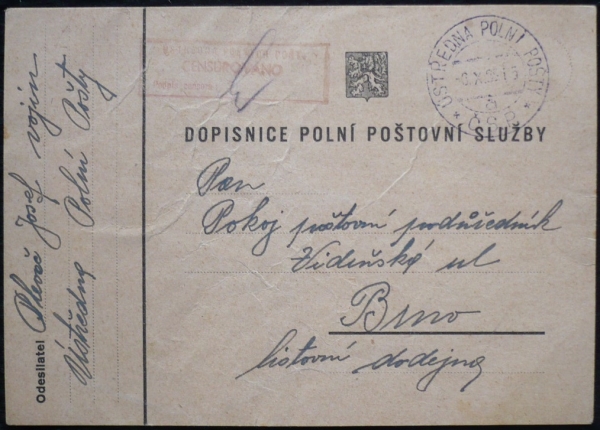 CENSUROVÁNO
ÚSTŘEDNA POLNÍ POŠTY
3
Č.S.P.
DOPISNICE POLNÍ POŠTOVNÍ SLUŽBY
Pan
Pokoj poštovní podúředník
Vídeňská ul
Brno
listovní dodejna
Odesílatel
Josef vojín
Ústředna Polní Pošty